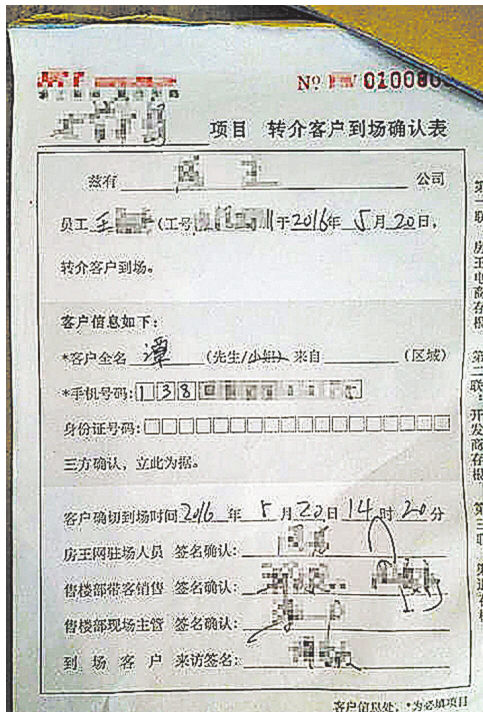 No 010080
项目 转介客户到场确认表
兹有 公司
员工 王 (工号 于2016年 5月 20日,
转介客户到场。
客户信息如下:
*客户全名 谭 (先生/小姐) 来自 (区域)
*手机号码: 138
身份证号码:
三方确认,立此为据。
客户确切到场时间 2016 年 5 月 20 日 14 时 20 分
房王网驻场人员 签名确认:
售楼部带客销售 签名确认:
售楼部现场主管 签名确认:
到场客户 来访签名:
客户信息处,*为必填项目
第一联:房王电商存根
第二联:开发商存根
第三联